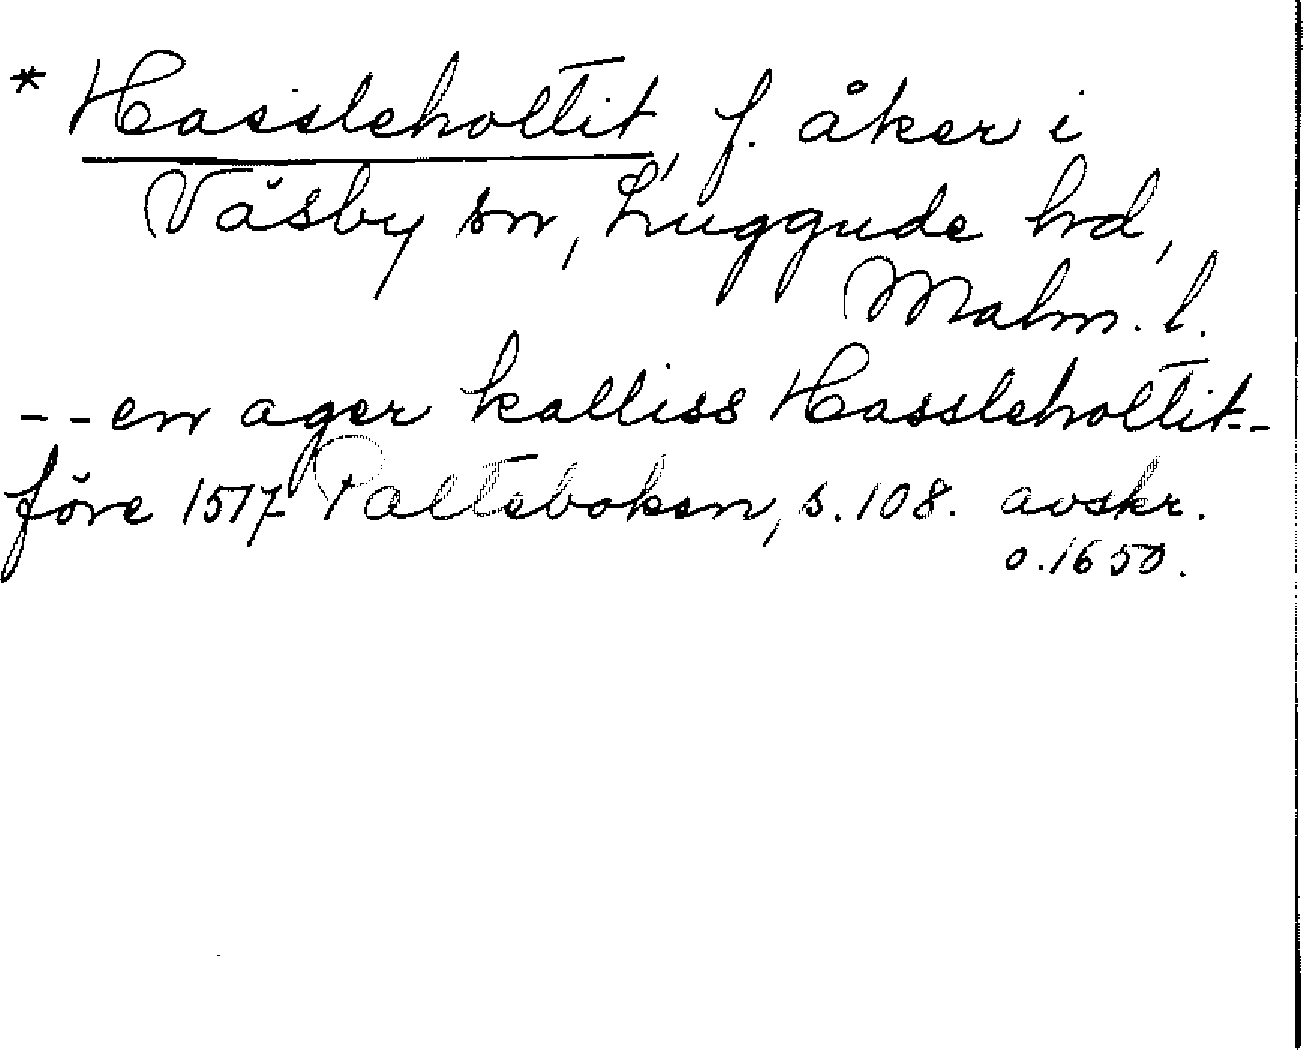 * Hassleholtit, f. åker i
Väsby sn, Luggude hd,
Malm. l.
-- en ager kalliss Hassleholtit --
före 1517 Palteboken, s. 108. avskr.
o. 1650.